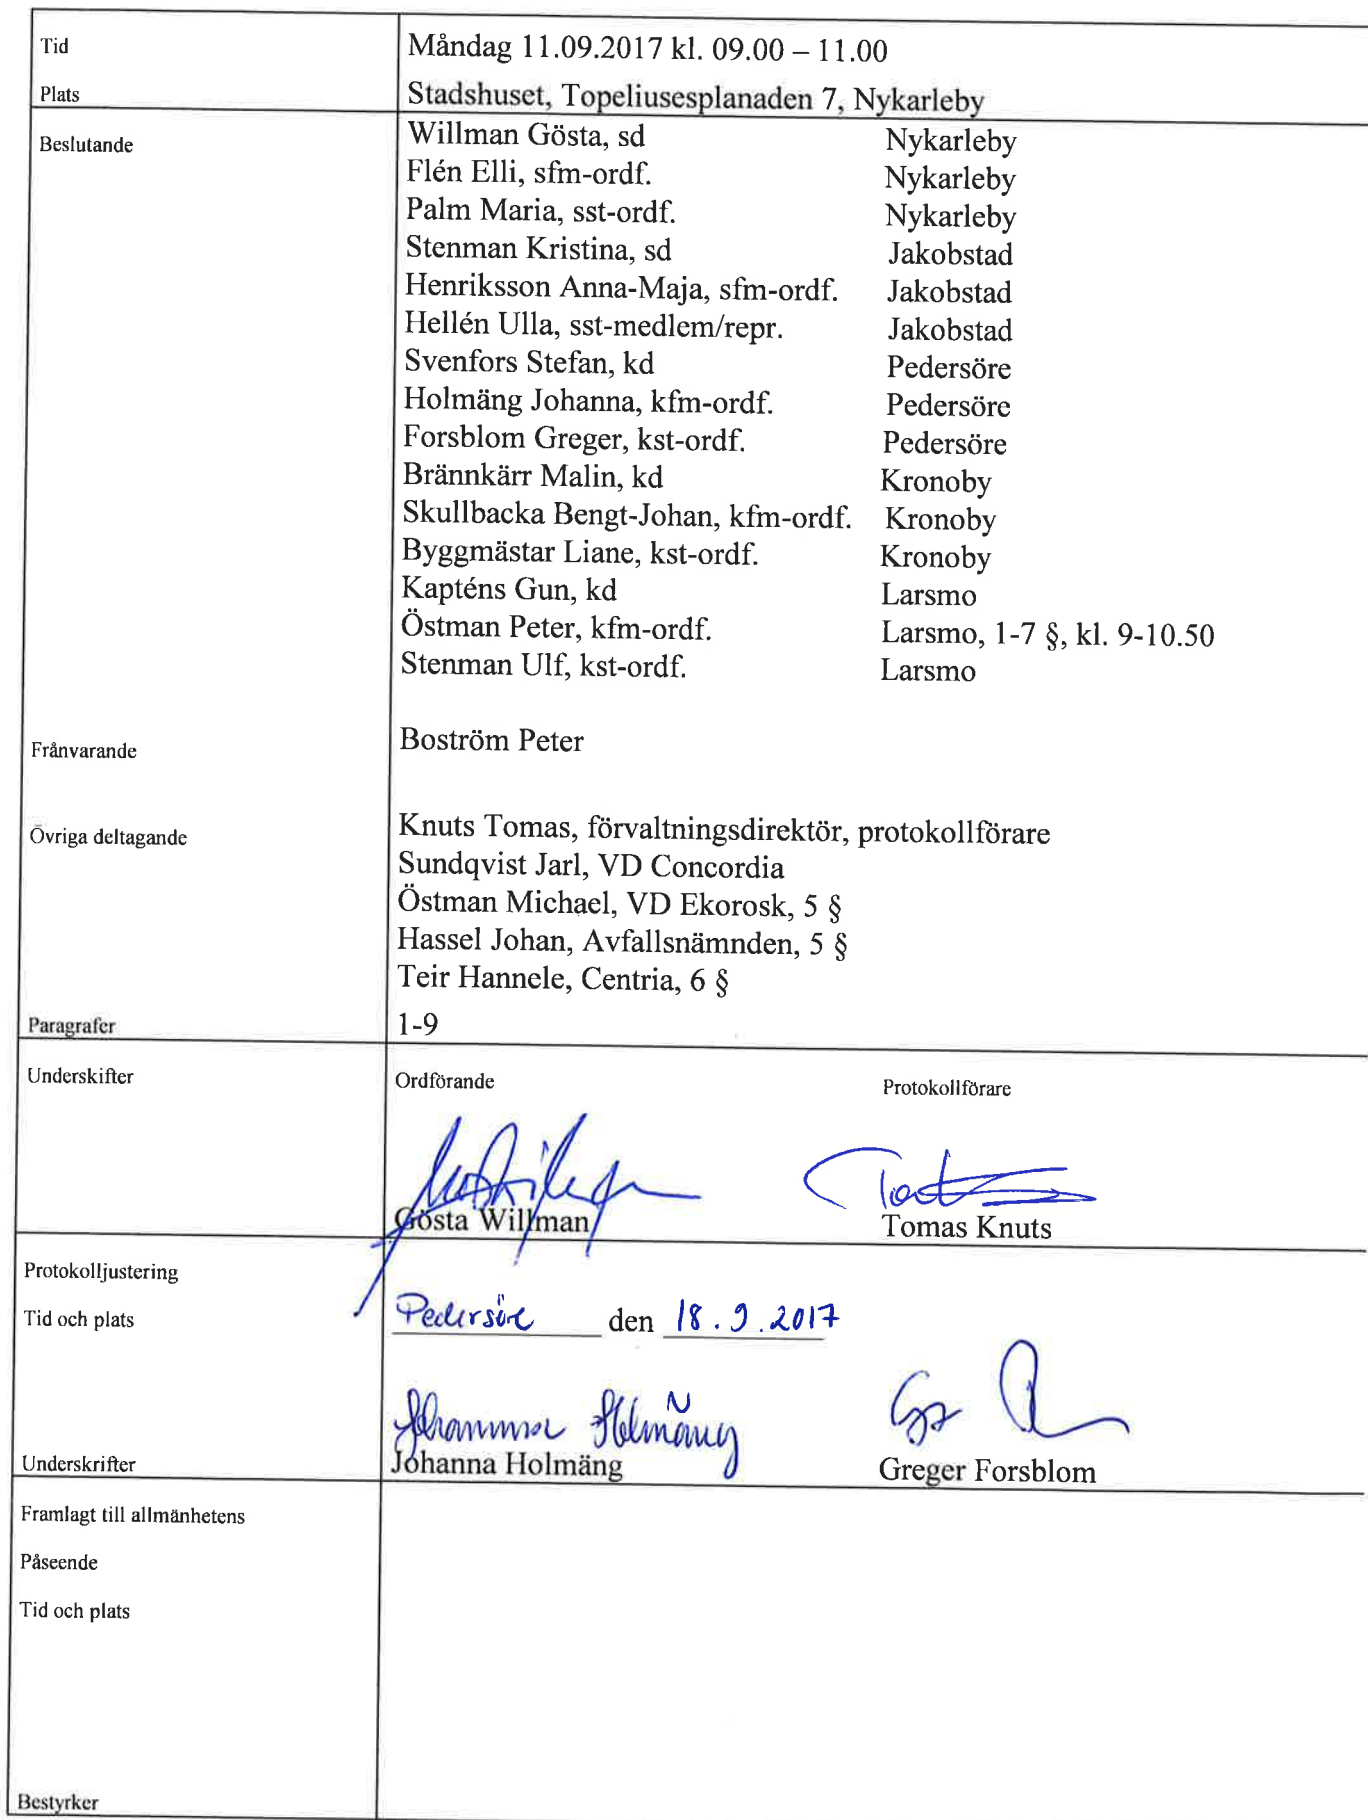 Tid Måndag 11.09.2017 kl. 09.00 – 11.00
Plats Stadshuset, Topeliusesplanaden 7, Nykarleby
Beslutande Willman Gösta, sd Nykarleby
Flén Elli, sfm-ordf. Nykarleby
Palm Maria, sst-ordf. Nykarleby
Stenman Kristina, sd Jakobstad
Henriksson Anna-Maja, sfm-ordf. Jakobstad
Hellén Ulla, sst-medlem/repr. Jakobstad
Svenfors Stefan, kd Pedersöre
Holmäng Johanna, kfm-ordf. Pedersöre
Forsblom Greger, kst-ordf. Pedersöre
Brännkärr Malin, kd Kronoby
Skullbacka Bengt-Johan, kfm-ordf. Kronoby
Byggmästar Liane, kst-ordf. Kronoby
Kapténs Gun, kd Larsmo
Östman Peter, kfm-ordf. Larsmo, 1-7 §, kl. 9-10.50
Stenman Ulf, kst-ordf. Larsmo
Frånvarande Boström Peter
Övriga deltagande Knuts Tomas, förvaltningsdirektör, protokollförare
Sundqvist Jarl, VD Concordia
Östman Michael, VD Ekorosk, 5 §
Hassel Johan, Avfallsnämnden, 5 §
Teir Hannele, Centria, 6 §
Paragrafer 1-9
Underskifter Ordförande Protokollförare
Gösta Willman Tomas Knuts
Protokolljustering
Tid och plats Pedersöre den 18.9.2017
Johanna Holmäng
Underskrifter Johanna Holmäng Greger Forsblom
Framlagt till allmänhetens
Påseende
Tid och plats
Bestyrker